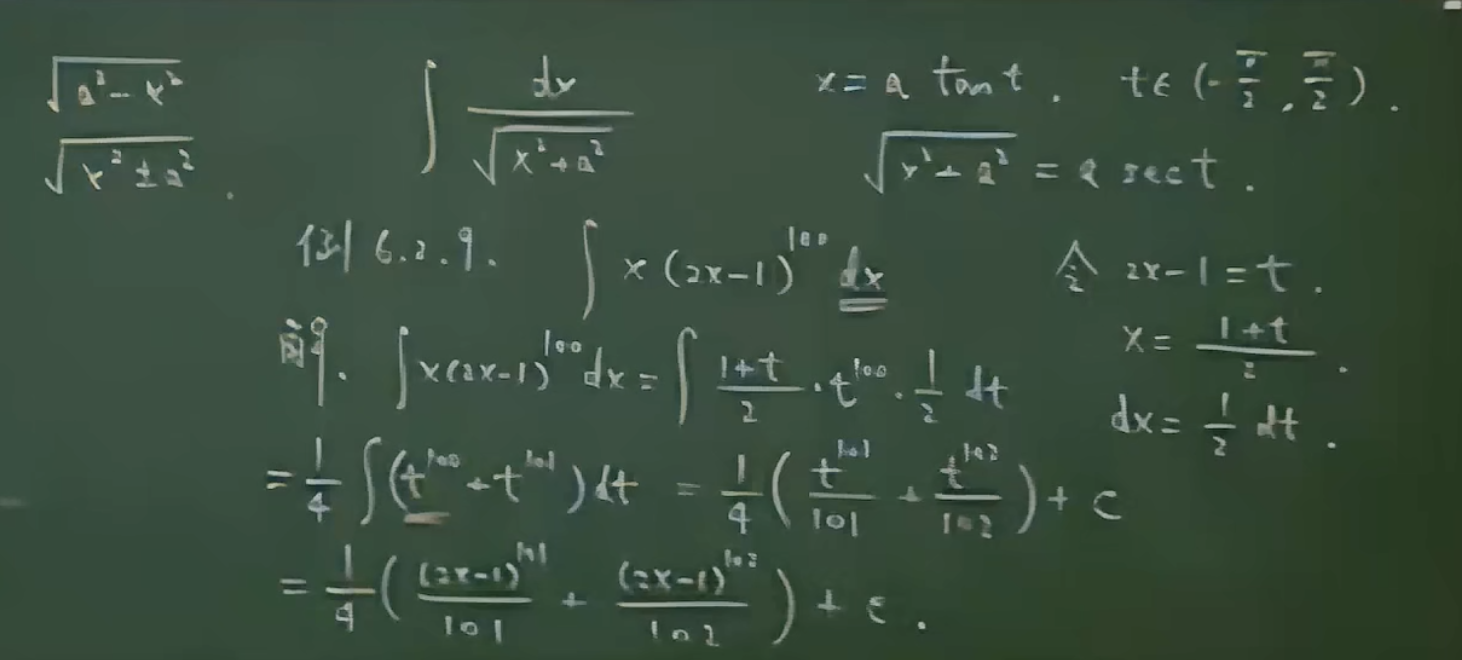 √(a²-x²) ∫ dx/√(x²+a²) x = a tan t. t∈(-π/2, π/2).
√(x²±a²). √(x²+a²) = a sec t.
例6.2.9. ∫ x(2x-1)¹⁰⁰ dx 令 2x-1=t.
x = (1+t)/2.
解. ∫ x(2x-1)¹⁰⁰ dx = ∫ (1+t)/2 · t¹⁰⁰ · 1/2 dt
dx = 1/2 dt.
= 1/4 ∫ (t¹⁰⁰ + t¹⁰¹) dt = 1/4 (t¹⁰¹/101 + t¹⁰²/102) + C
= 1/4 ((2x-1)¹⁰¹/101 + (2x-1)¹⁰²/102) + C.